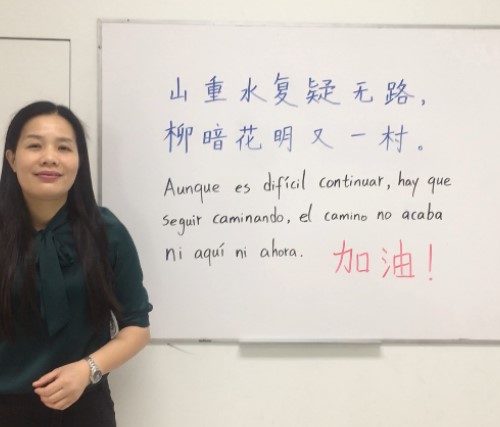 山重水复疑无路，
柳暗花明又一村。
Aunque es difícil continuar, hay que
seguir caminando, el camino no acaba
ni aquí ni ahora. 加油！